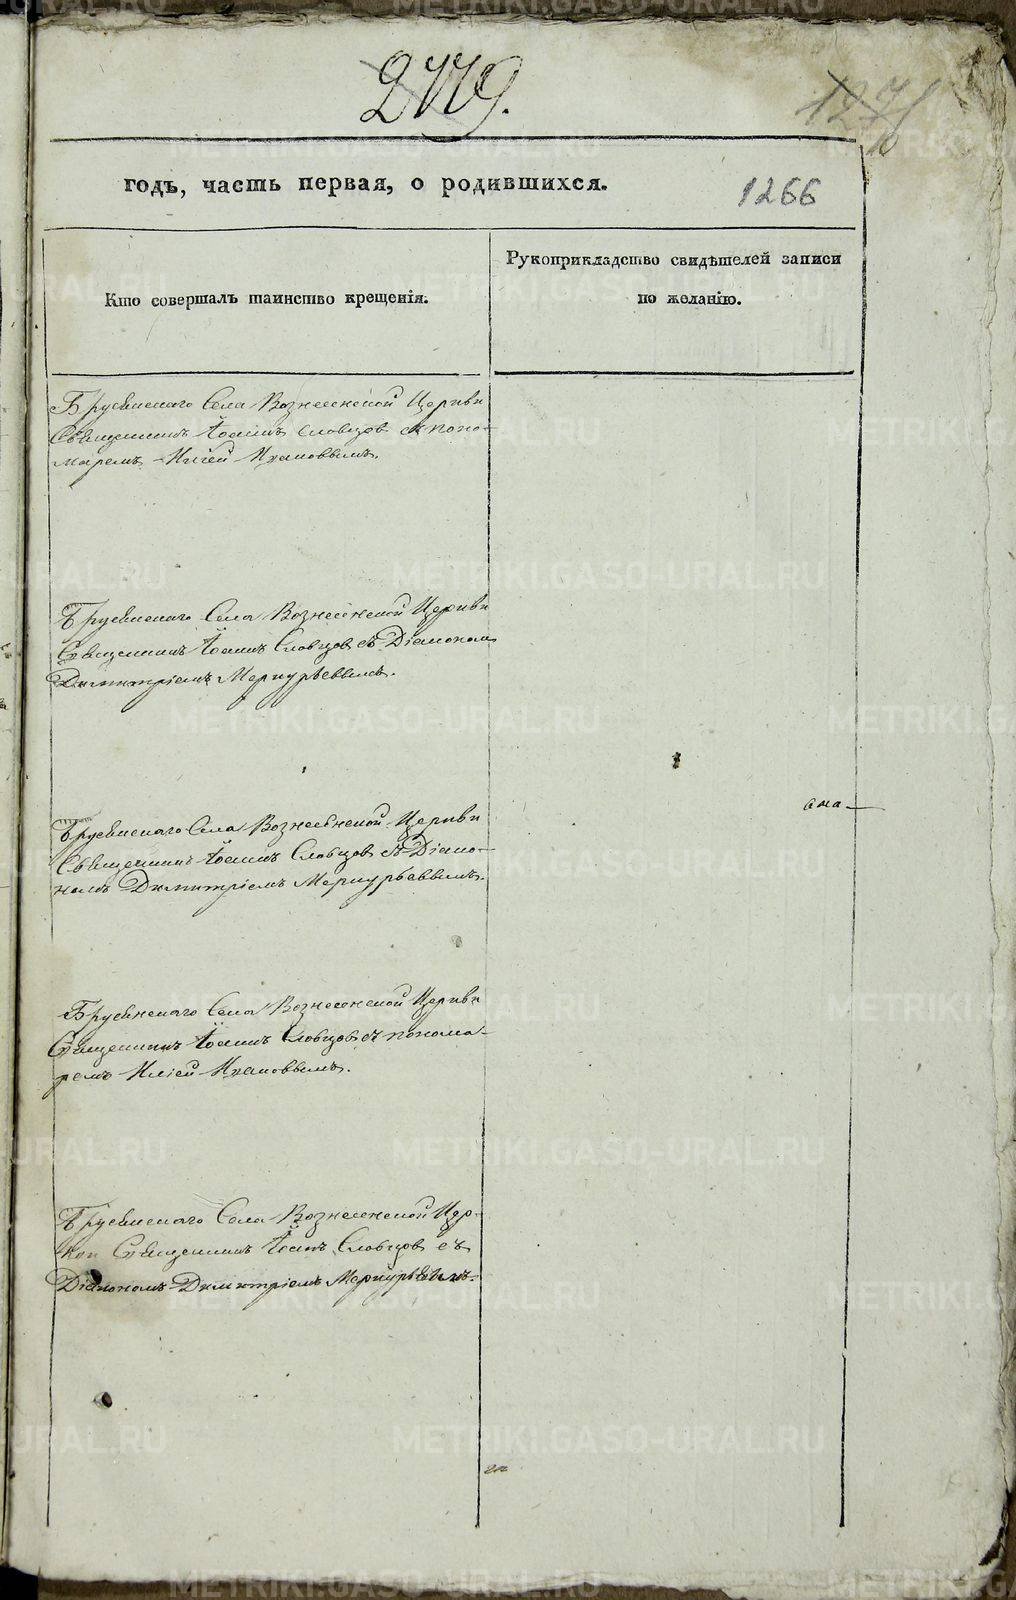 2779.
1271
годъ, часть первая, о родившихся.
1266
Кто совершалъ таинство крещенія.
Рукоприкладство свидѣтелей записи
по желанію.
Брусянскаго Села Вознесенской Церкви
Священникъ Іоаннъ Словцовъ съ поно-
маремъ Иліей
Брусянскаго Села Вознесенской Церкви
Священникъ Іоаннъ Словцовъ съ Діакономъ
Димитріемъ Меркурьевымъ.
Брусянскаго Села Вознесенской Церкви
Священникъ Іоаннъ Словцовъ съ Діако-
номъ Димитріемъ Меркурьевымъ.
Брусянскаго Села Вознесенской Церкви
Священникъ Іоаннъ Словцовъ съ понома-
ремъ Иліей
Брусянскаго Села Вознесенской Цер-
кви Священникъ Іоаннъ Словцовъ съ
Діакономъ Димитріемъ Меркурьевымъ.
METRIKI.GASO-URAL.RU